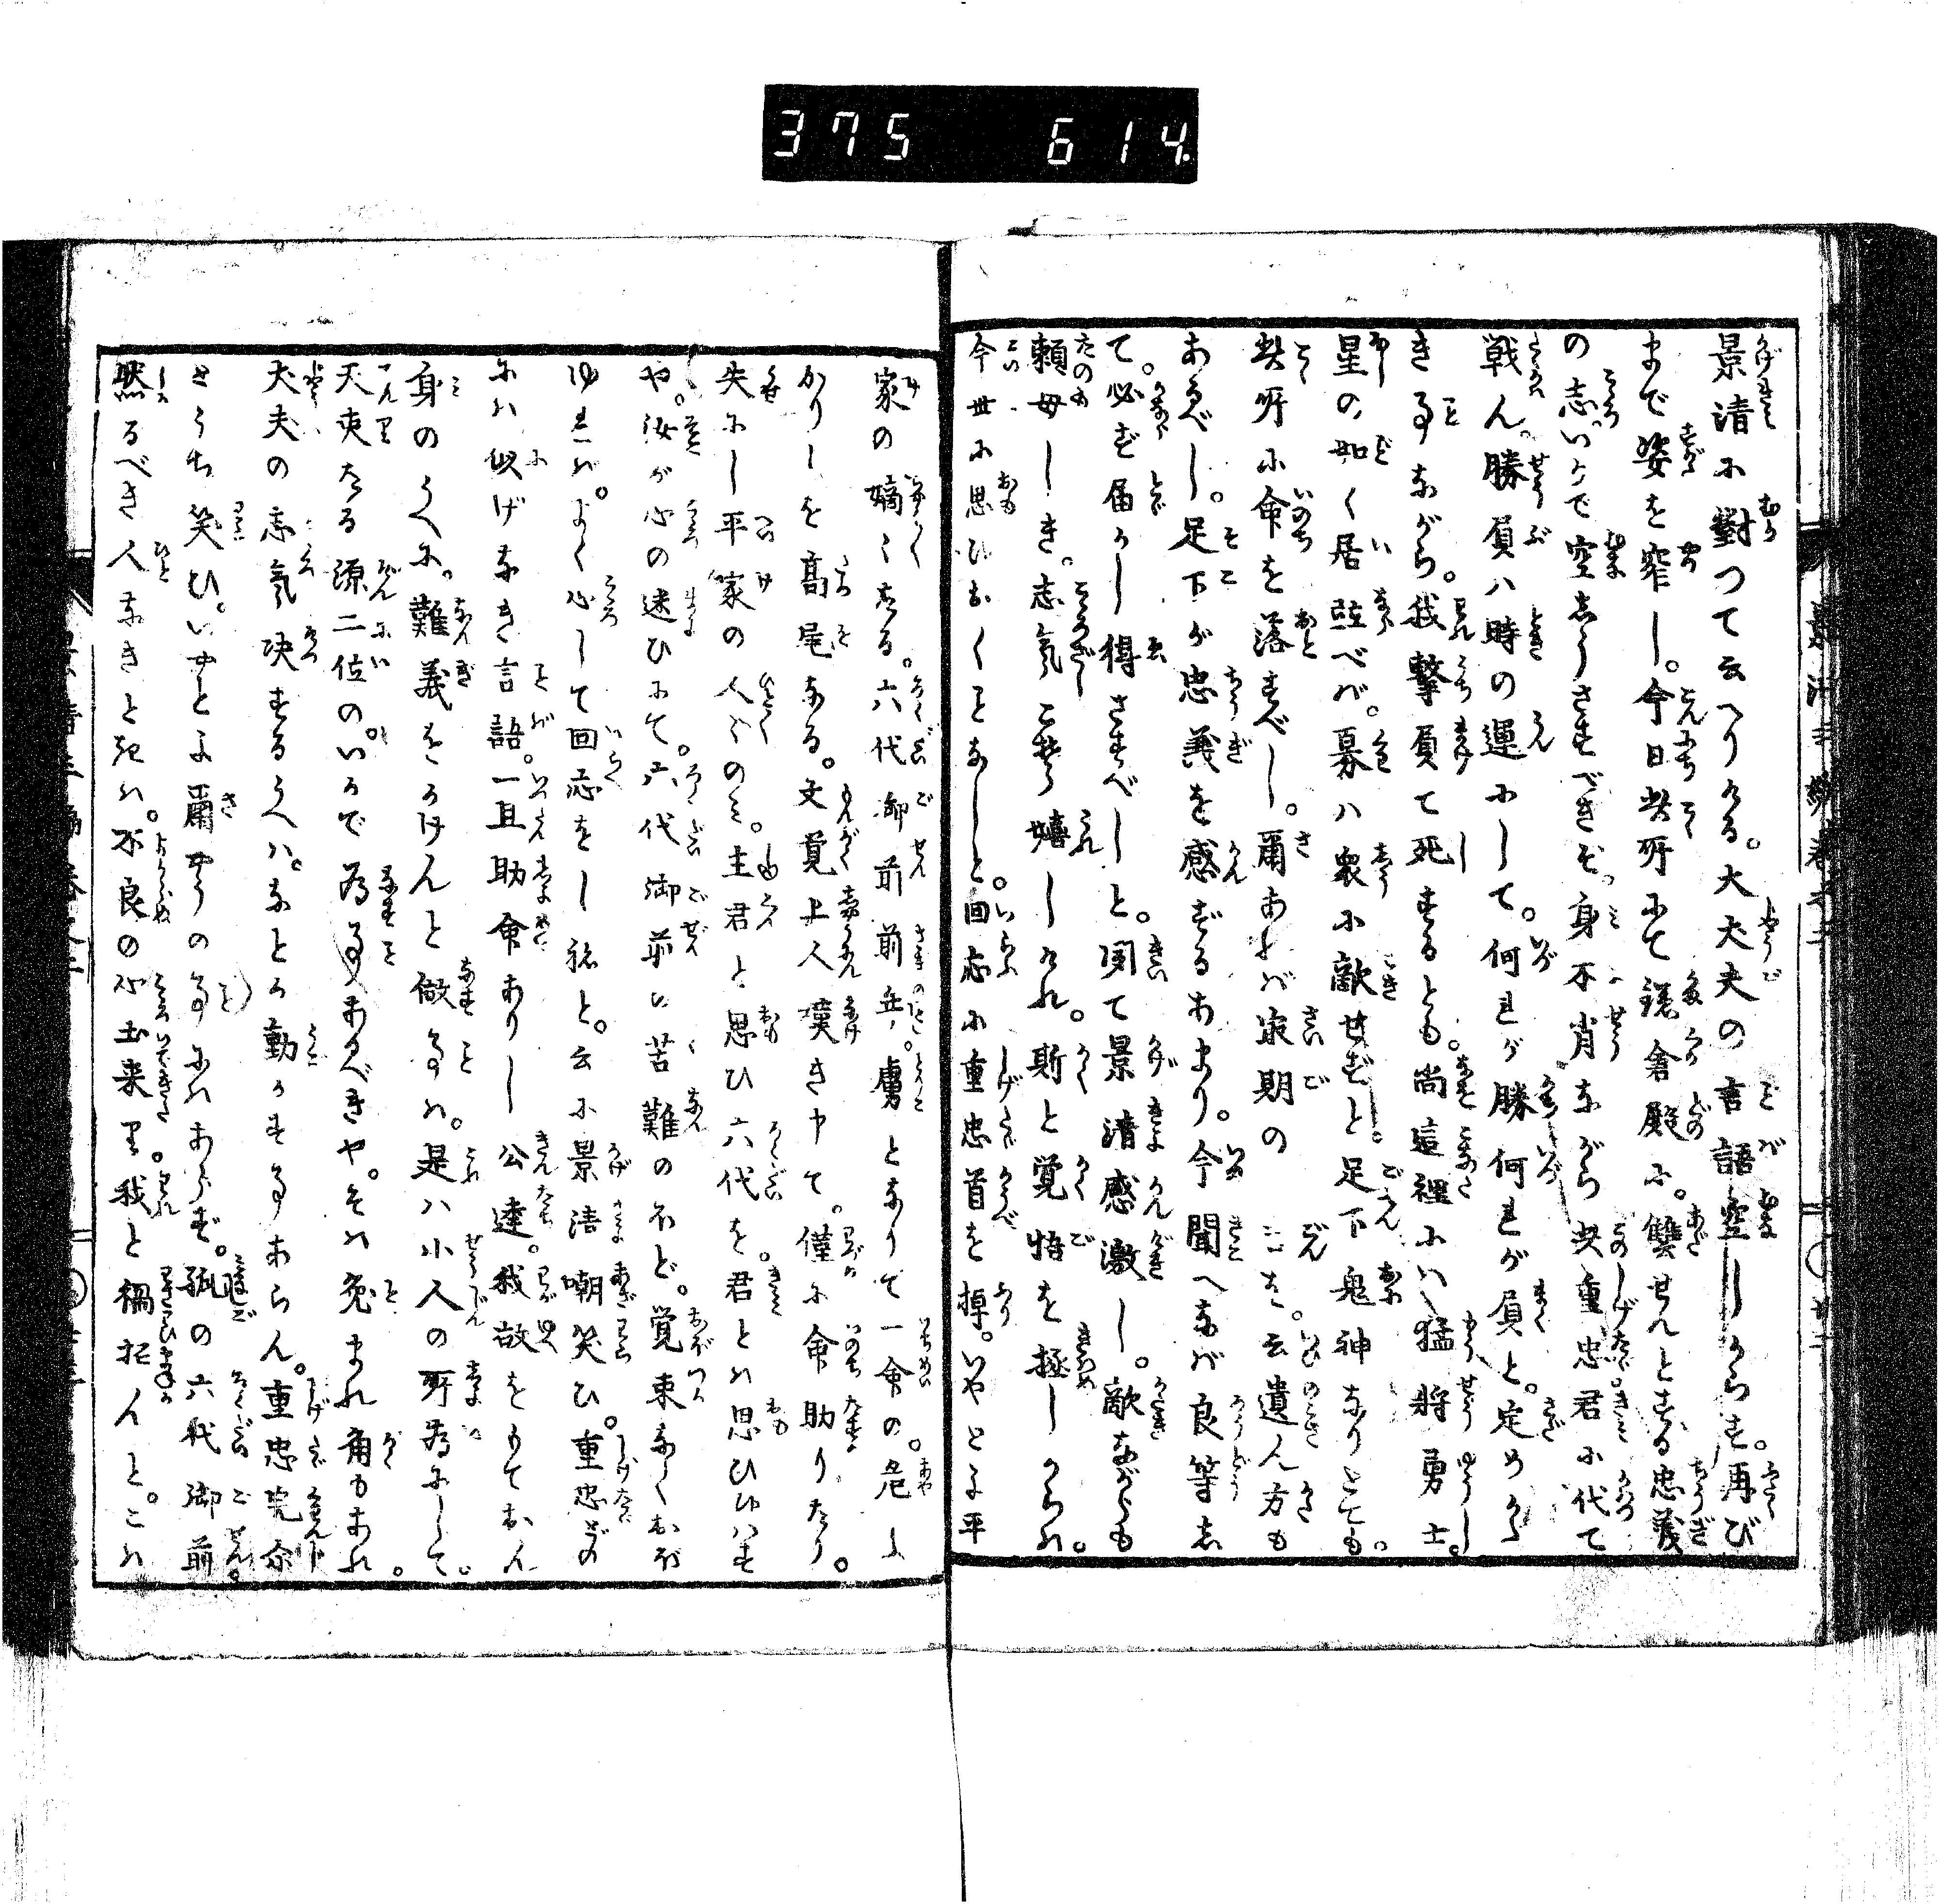 375 614
景清に對つて云へりける。大丈夫の言語空しからず。再び
まで姿を窄し。今日此所にて鎌倉殿に。讐せんとする忠義
の志。いかで空しうさすべきぞ。身不肖ながら此重忠君に代て
戦ん。勝負ハ時の運にして。何れが勝何れが負と。定めがた
き事ながら。我撃負て死するとも。尚這裡にハ猛将勇士。
星の如く居並べバ。寡ハ衆に敵せずと。足下鬼神なりとても。
此所に命を落すべし。爾あれバ最期の一言を。云遺ん方も
あるべし。足下が忠義を感ずるあまり。今聞へなバ良等し
て。必ず届かし得さすべしと。聞て景清感激し。敵ながらも
頼母しき。志気こそ嬉しけれ。斯と覚悟を極しからハ。
今世に思ひおくことなしと。回応に重忠首を掉。いやとよ平
家の嫡々なる。六代御前前年。虜となりて一命の。危ふ
かりしを高尾なる。文覚上人懽き申て。僅に命助りたり。
失にし平家の人々のミ。主君と思ひ六代を。君とハ思ひ給ハず
や。汝が心の迷ひにて。六代御前に苦難のほど。覚束なくおぼ
ゆれバ。よく心して回応をし給と。云に景清嘲笑ひ。重忠どの
にハ似げなき言語。一旦助命ありし公達。我故をもておん
身のうへに。難義をかけんと做事ハ。是ハ小人の所為にして。
天吏たる源二位の。いかで為事あるべきや。そハ兎まれ角もあれ。
丈夫の志気決するうへハ。なとか動かす事あらん。重忠完尓
とうち笑ひ。いやとよ爾やうの事にハあらず。孤の六代御前。
然るべき人なきときハ。不良の心出来り。我と禍招んと。こハ